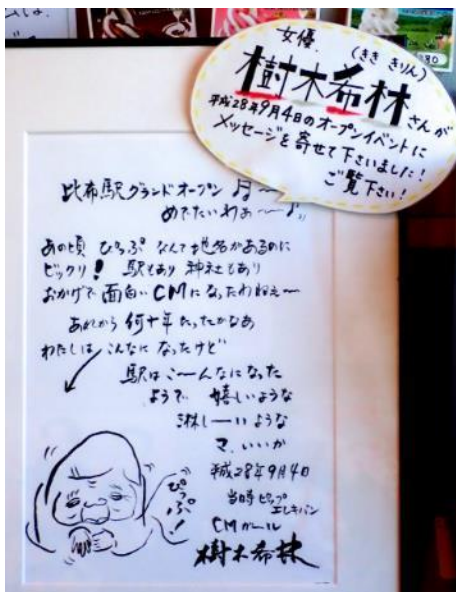 女優.
(きき きりん)
樹木希林さんが
平成28年9月4日のオープンイベントに
メッセージを寄せて下さいました!
ご覧下さい!
比布駅グランドオープン
めでたいわぁ〜
あの頃 ぴっぷ なんて地名があるのに
ビックリ! 駅もあり 神社もあり
おかげで 面白いCMになったわねえ〜
あれから 何十年たったかなあ
わたしは こんなに なったけど
駅はこ〜んなになった
ようで 嬉しいような
淋し〜いような
マ、いいか
平成28年9月4日
当時ピップ
エレキバン
CMガール
樹木希林
ぴっぷ!